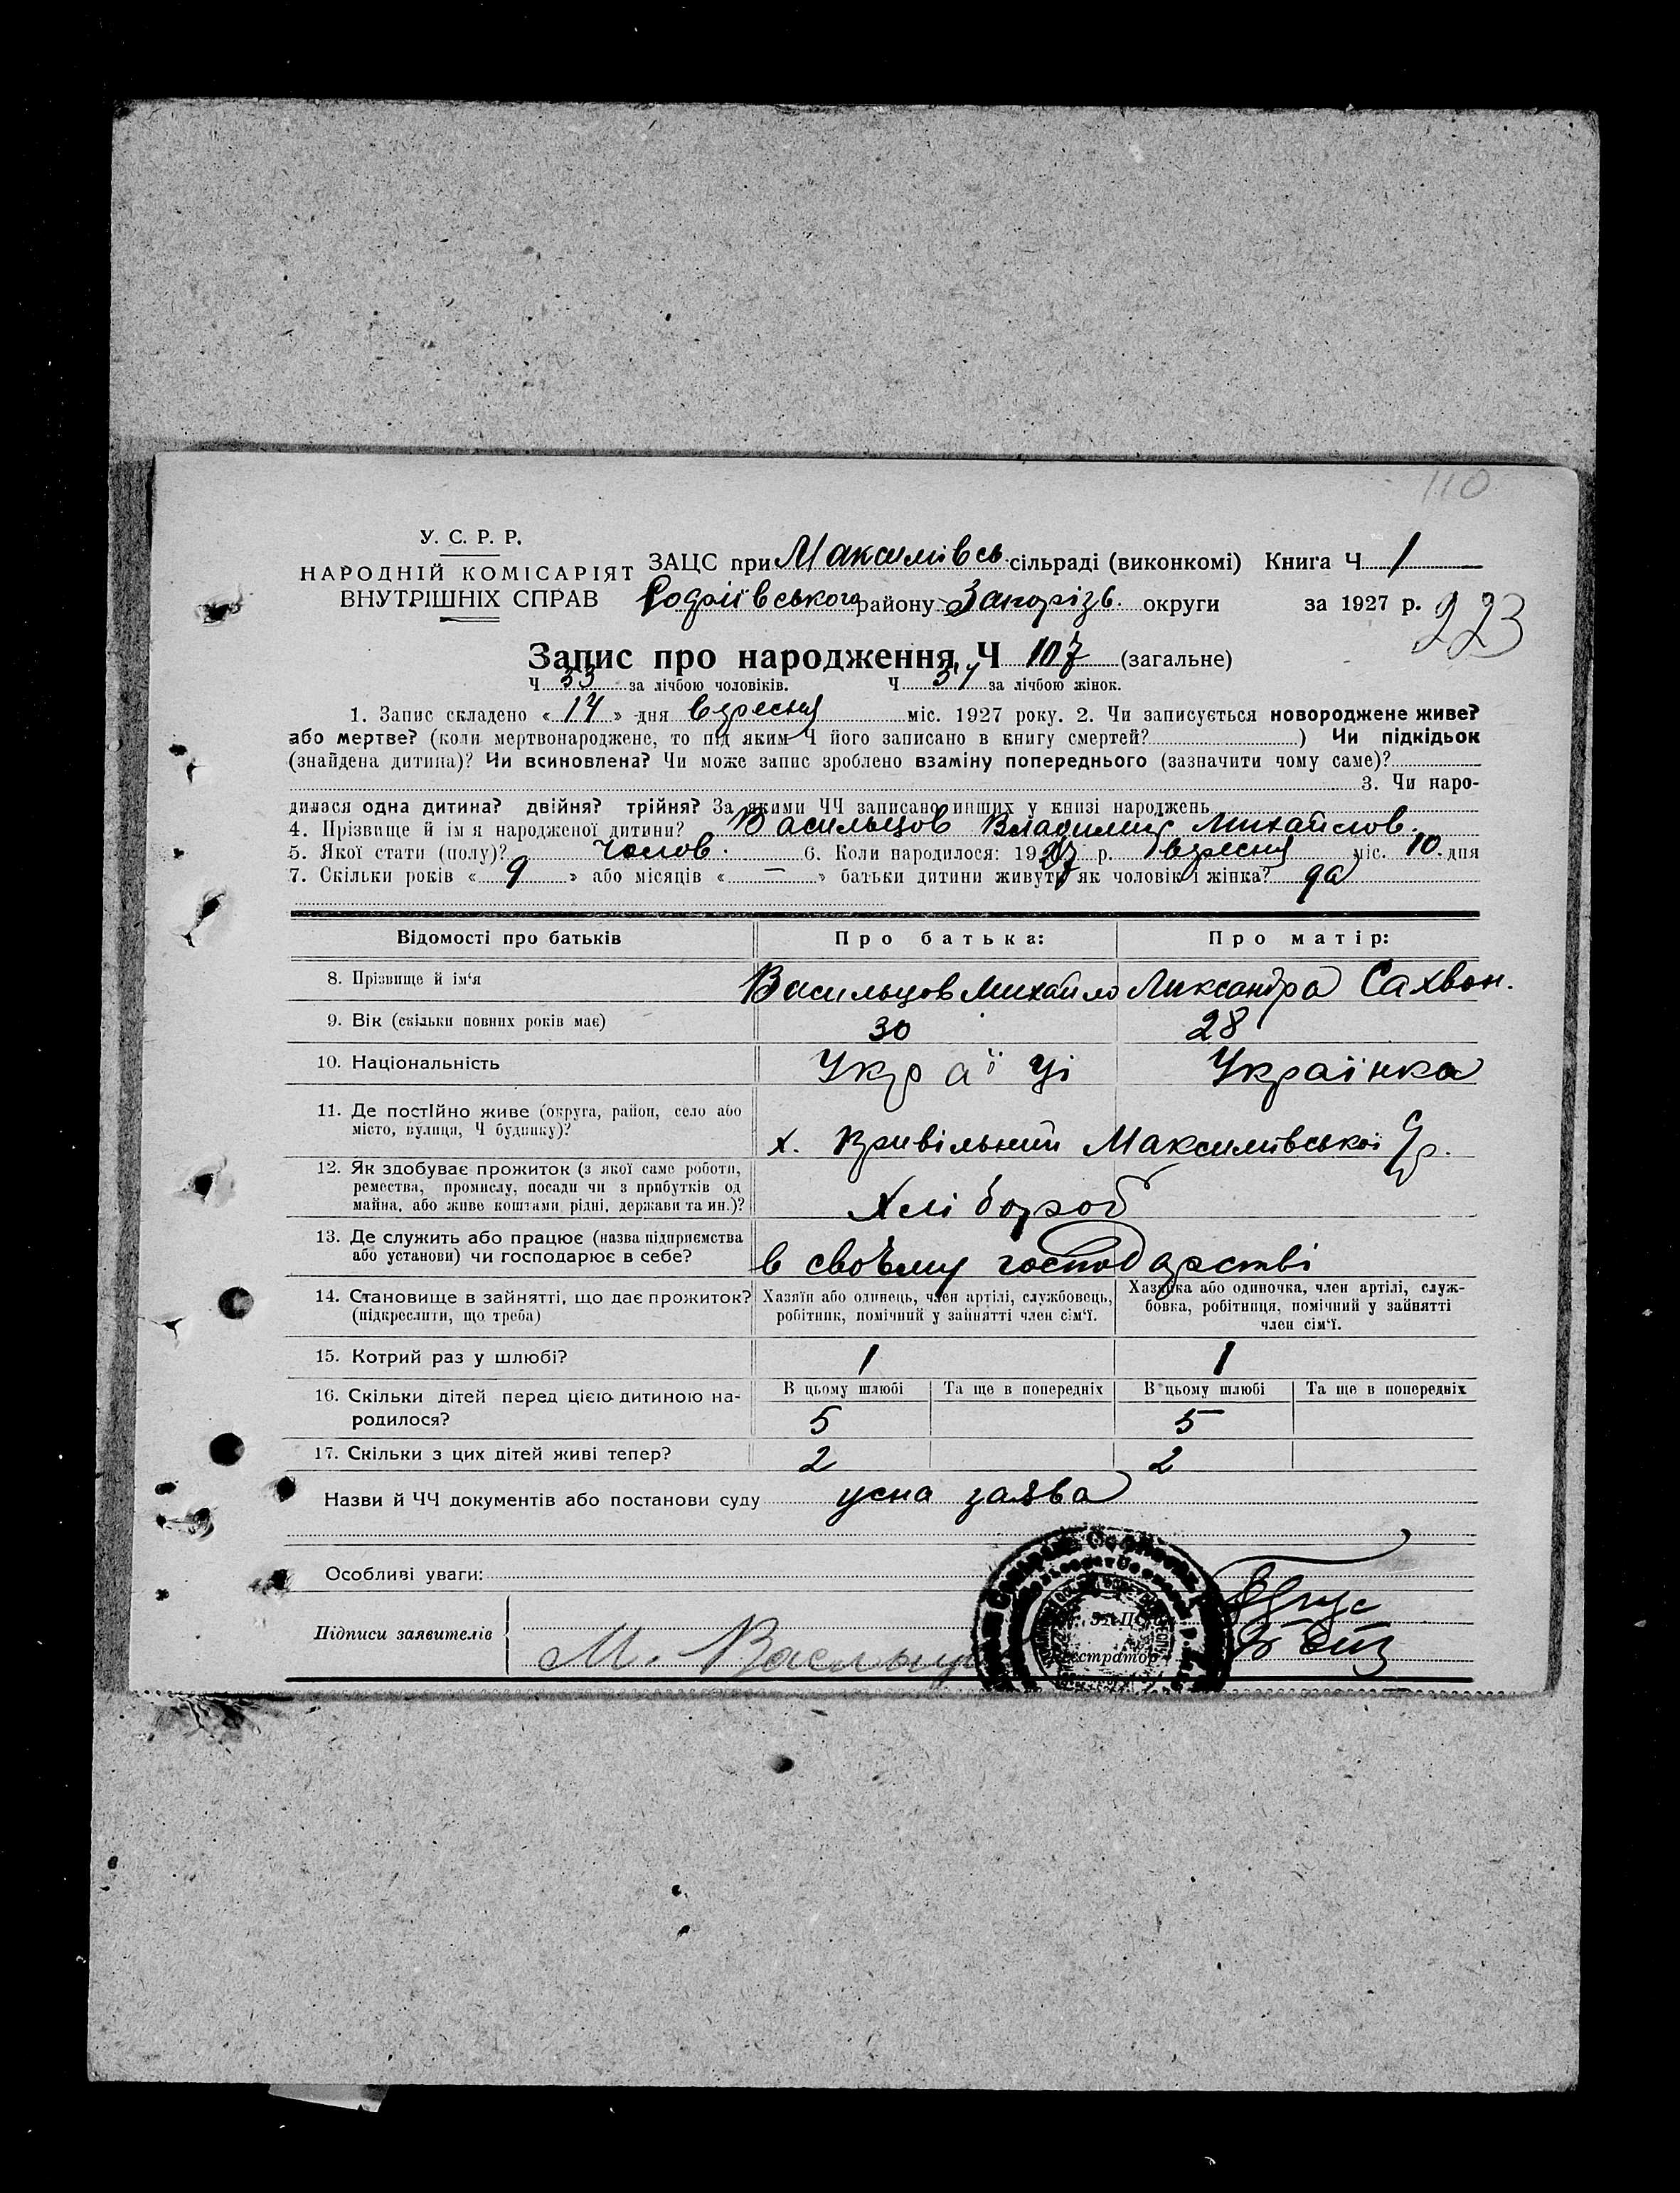 110
У. С. Р. Р.
НАРОДНІЙ КОМІСАРІЯТ
ВНУТРІШНІХ СПРАВ
ЗАЦС при Максимівсь. сільраді (виконкомі) Книга Ч 1
району Запорізь. округи за 1927 р.
223
Запис про народження Ч 107 (загальне)
Ч 53 за лічбою чоловіків. Ч за лічбою жінок.
1. Запис складено « 14 » дня вересня міс. 1927 року. 2. Чи записується новороджене живе?
або мертве? (коли мертвонароджене, то під яким Ч його записано в книгу смертей? ) Чи підкідьок
(знайдена дитина)? Чи всиновлена? Чи може запис зроблено взаміну попереднього (зазначити чому саме)?
3. Чи наро-
дилася одна дитина? двійня? трійня? За якими ЧЧ записано инших у книзі народжень
4. Прізвище й ім'я народженої дитини? Васильцов Владимир Михайлов.
5. Якої стати (полу)? чолов. 6. Коли народилося: 1927 р. вересня міс. 10 дня
7. Скільки років « 9 » або місяців « — » батьки дитини живуть як чоловік і жінка? да
Відомості про батьків Про батька: Про матір:
8. Прізвище й ім'я Васильцов Михайло Александра Сахвон.
9. Вік (скільки повних років має) 30 28
10. Національність Украї ці Українка
11. Де постійно живе (округа, район, село або
місто, вулиця, Ч будинку)?
х. Привільний Максимівської
12. Як здобуває прожиток (з якої саме роботи,
ремества, промислу, посади чи з прибутків од
майна, або живе коштами рідні, держави та ин.)?
Хлібороб
13. Де служить або працює (назва підприємства
або установи) чи господарює в себе?
в своъму господарстві
14. Становище в зайнятті, що дає прожиток?
(підкреслити, що треба)
Хазяїн або одинець, член артілі, службовець,
робітник, помічний у зайнятті член сім'ї.
Хазяйка або одиночка, член артілі, служ-
бовка, робітниця, помічний у зайнятті
член сім'ї.
15. Котрий раз у шлюбі? 1 1
16. Скільки дітей перед цією дитиною на-
родилося?
В цьому шлюбі Та ще в попередніх В цьому шлюбі Та ще в попередніх
5 5
17. Скільки з цих дітей живі тепер? 2 2
Назви й ЧЧ документів або постанови суду усна заява
Особливі уваги:
Підписи заявителів
М. Васильц
Реєстратор